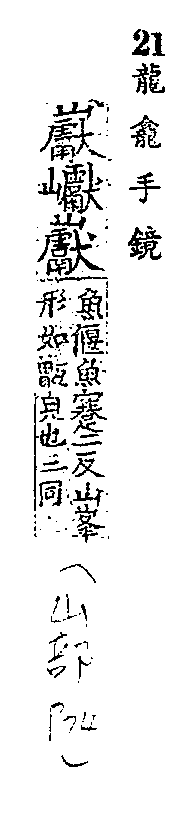 21 龍龕手鏡
巘
魚偃魚蹇二反山峯
形如甑皃也三同
(山部